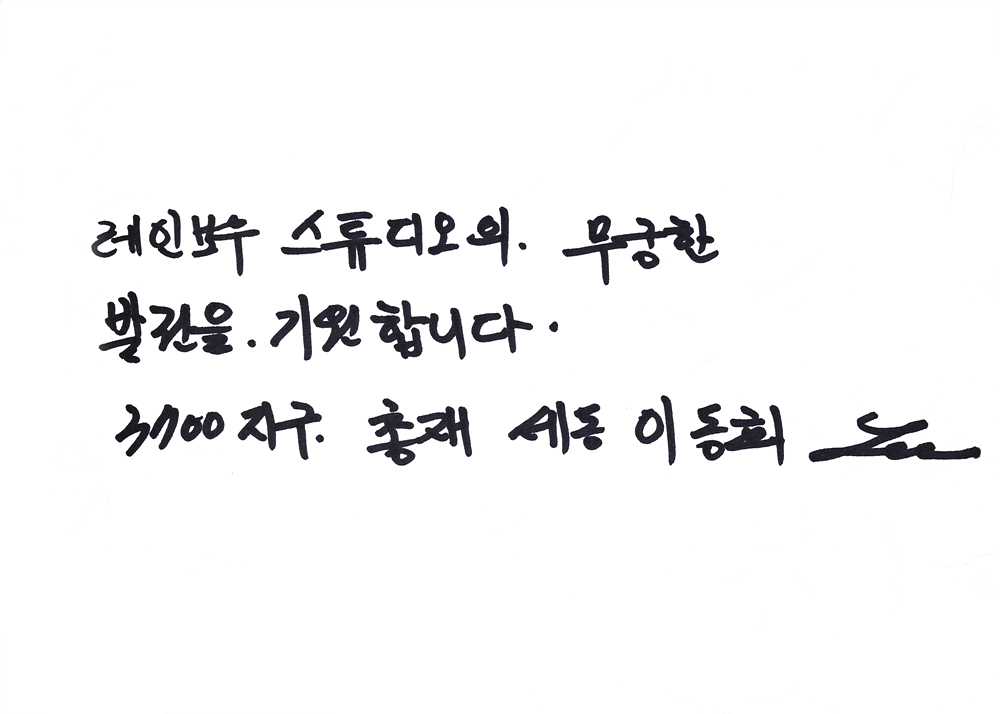 레인보우 스튜디오의. 무궁한
발전을. 기원합니다.
3700 지구. 총재 세동 이동희 Lee